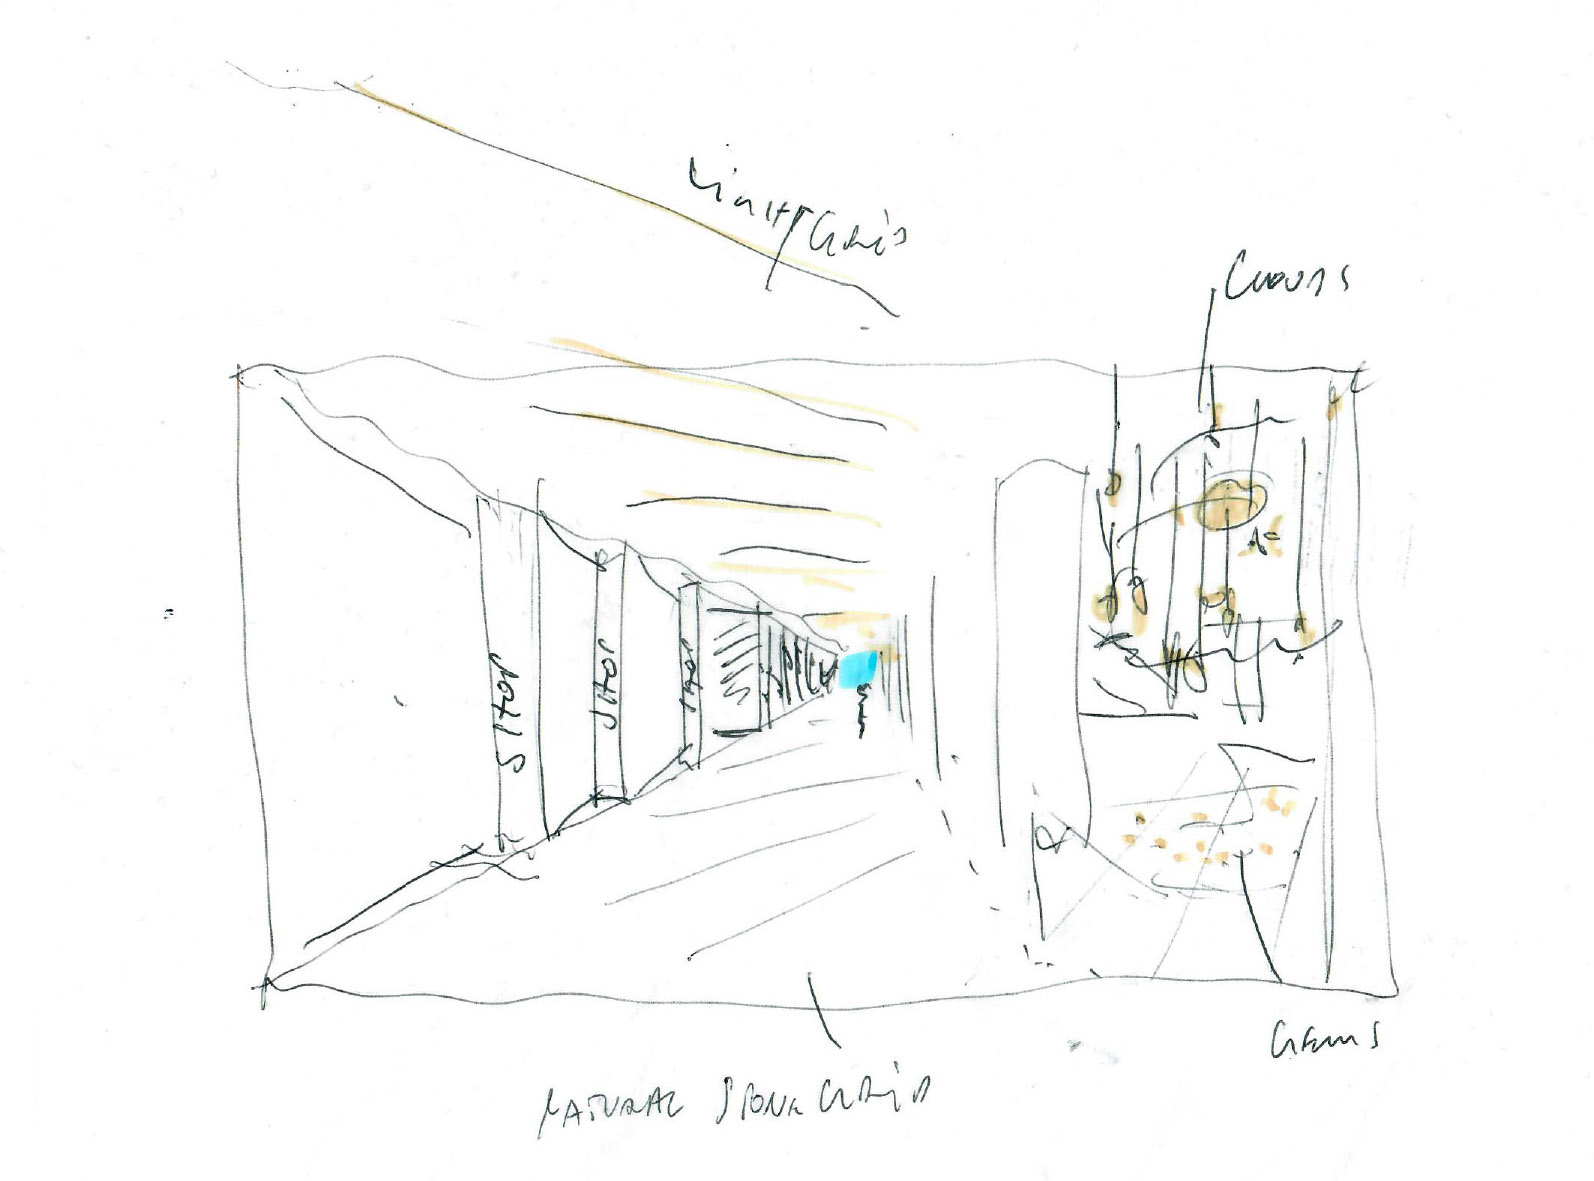 LIGHT GRID
CLOUDS
Stor
Stor
Stor
GEMS
NATURAL STONE GRID